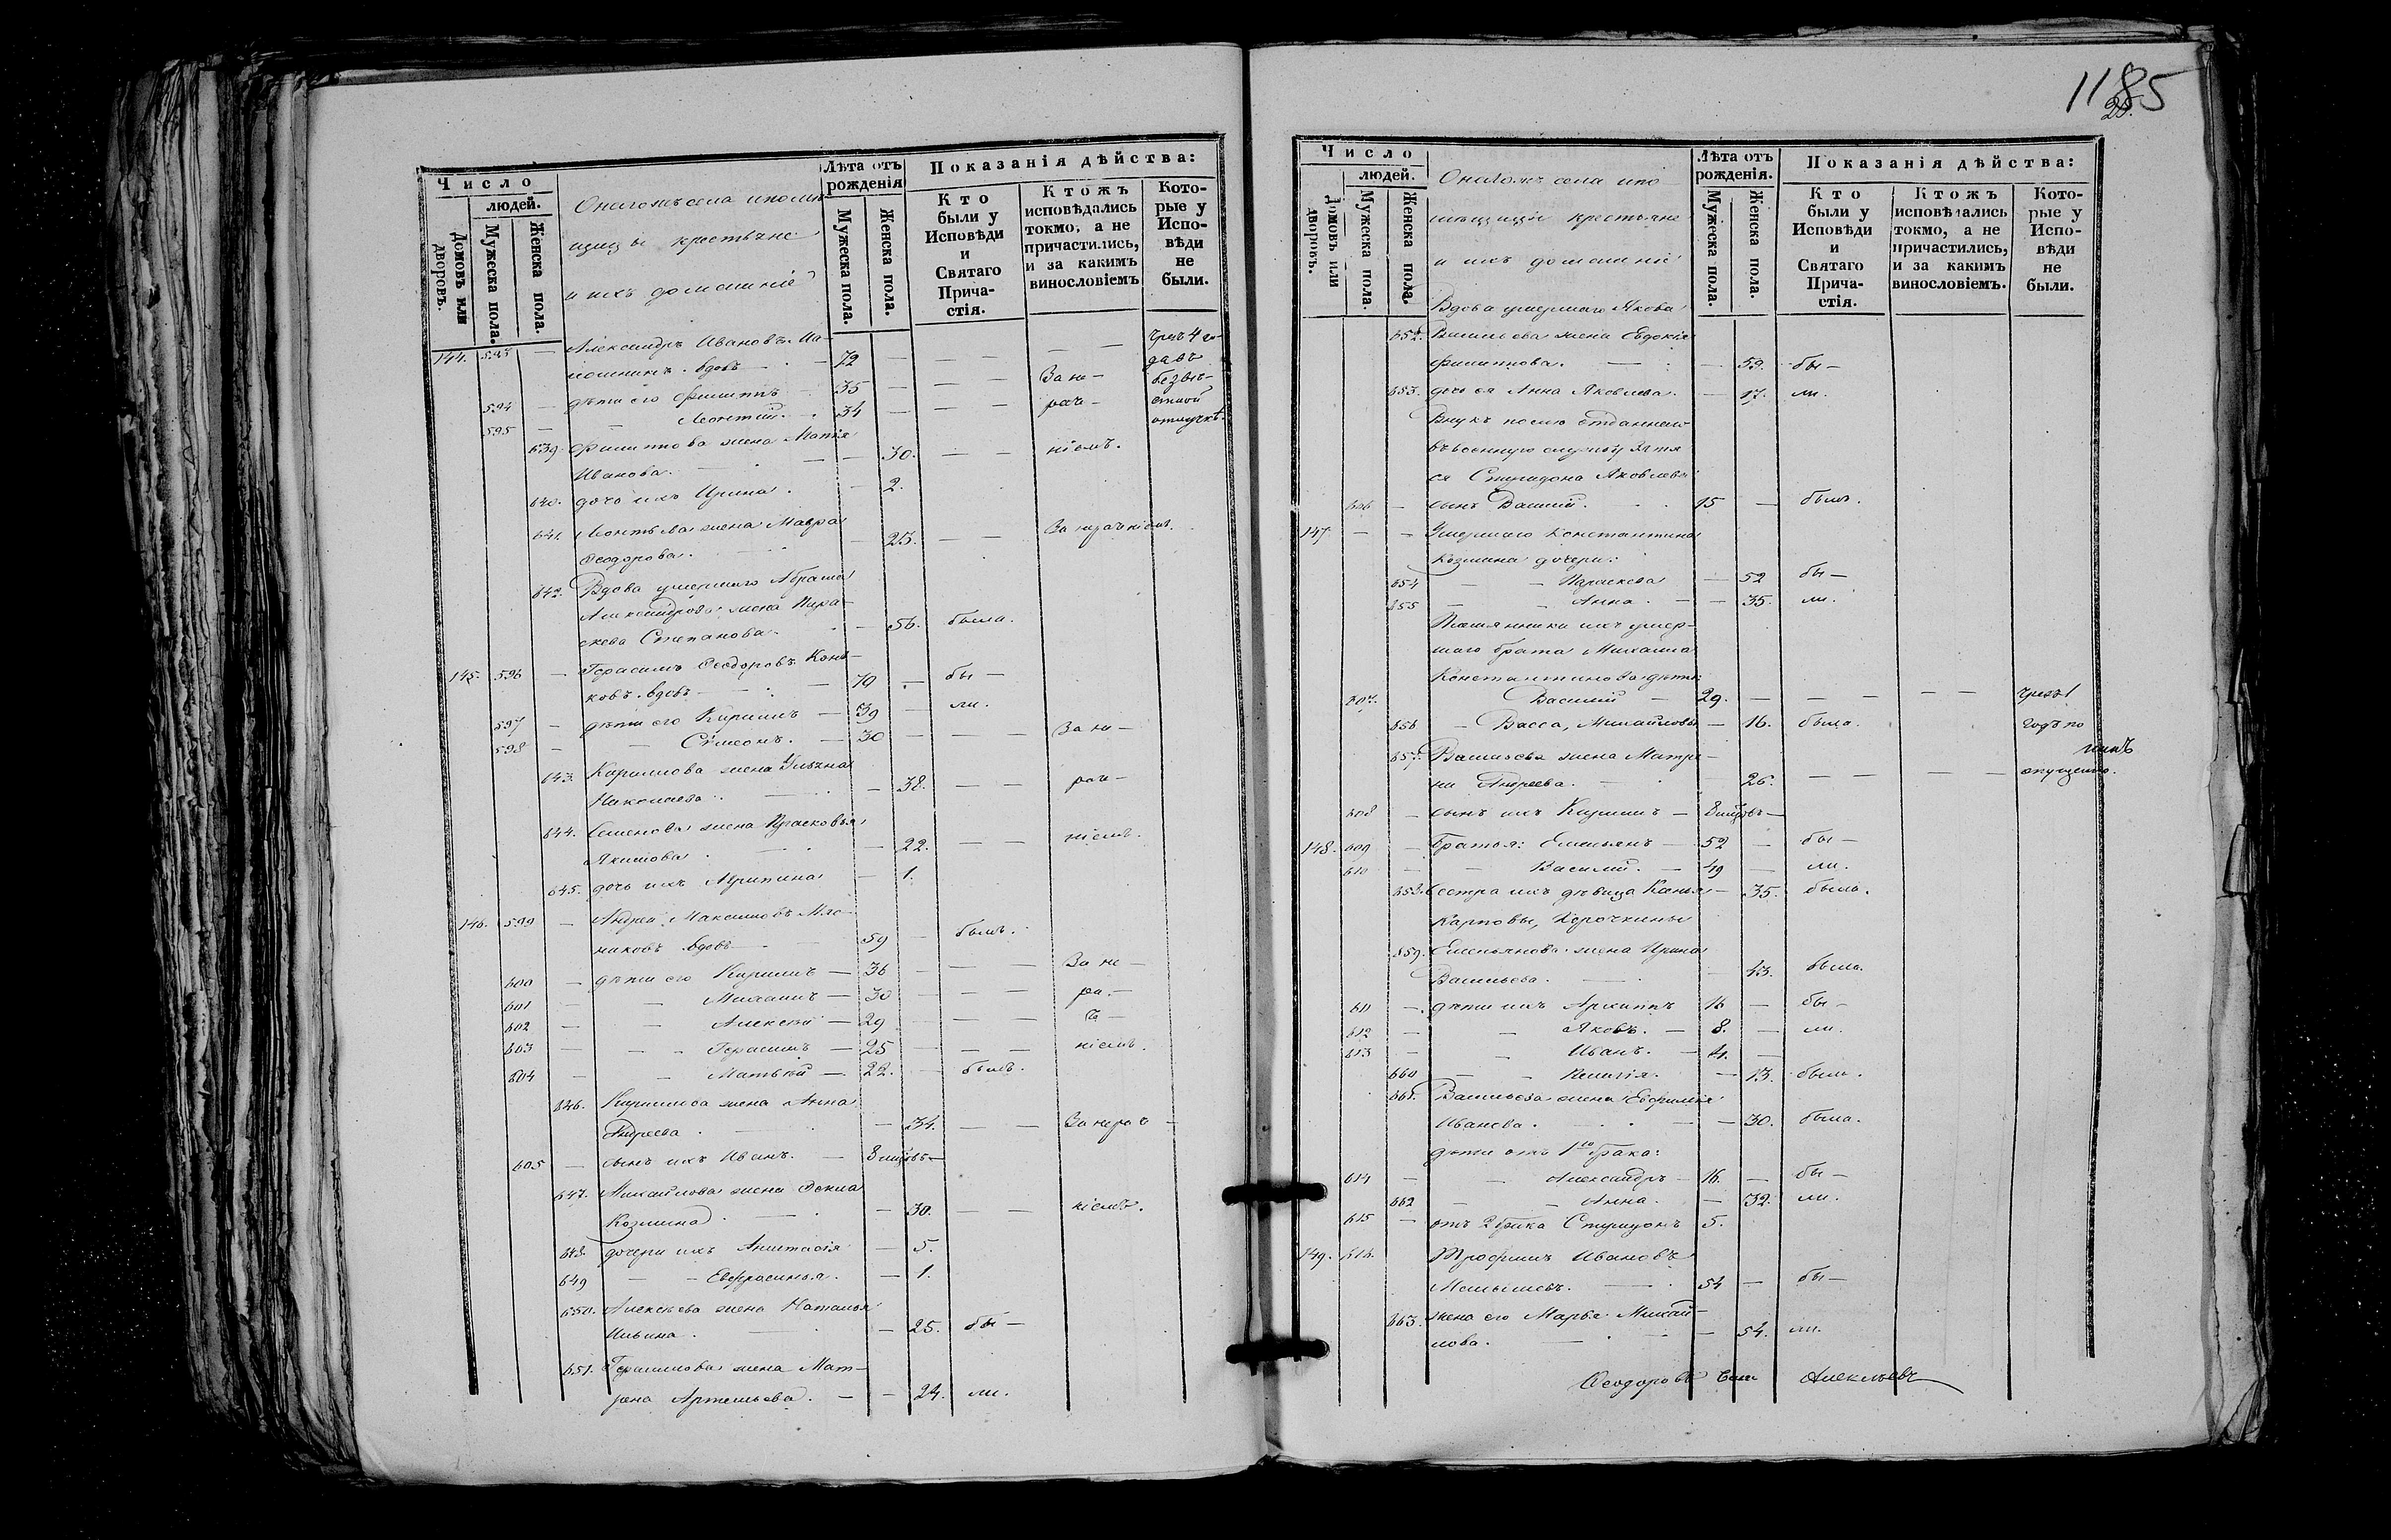 1185
25.
Число
людей.
Домовъ или дворовъ.
Мужеска пола.
Женска пола.
Онагожъ села и помѣ-
щицы крестьяне
и ихъ домашніе
Лѣта отъ рожденія
Мужеска пола.
Женска пола.
Показанія дѣйства:
Кто были у Исповѣди и Святаго Прича-стія.
Ктожъ исповѣдались токмо, а не причастились, и за какимъ винословіемъ
Кото-рые у Испо-вѣди не были.
144. 593 — Александръ Ивановъ
вдовъ — 72 — — — —
594 — дѣти его Филиппъ 35 — — — За не-
595 — — Леонтій. 34 — — — рач-
безвѣ-
стной
отлучкѣ.
639. Филиппова жена
Иванова. — — 30. — — ніемъ.
640. дочь ихъ Ирина. — 2.
641. Леонтьева жена Мавра
Ѳеодорова. — 25. — — За нерачніемъ.
642. Вдова умершаго Абрама
Александрова жена Пара-
скева Степанова. — 56. была.
145. 596 — Герасимъ Ѳеодоровъ Конь-
ковъ. вдовъ — 70 — бы —
597 — дѣти его Кирилъ — 39 — ли.
598 — — Сѵмеонъ. — 30 — — — За не-
643. Кирилова жена Ульяна
Николаева. — 38. — — рач-
644. Семенова жена Прасковья
Акимова — 22. — — ніемъ.
645. дочь ихъ Агрипина — 1.
146. 599 — Андрей Максимовъ
вдовъ — 59 — былъ.
600 — дѣти его Кирилъ — 36 — — — За не —
601 — — Михаилъ — 30 — — — ра. —
602 — — Алексѣй — 29 — — — ч —
603 — — Герасимъ — 25 — — — ніемъ.
604 — — Матвѣй — 22. — былъ.
646. Кирилова жена Анна
Андреева. — 34. — — За нерач —
605 — сынъ ихъ Иванъ. — 8 мцовъ —
647. Михайлова жена Ѳекла
Козмина — 30. — — ніемъ.
648. дочери ихъ Анастасія — 5.
649 — — Евфросинья. — 1.
650. Алексѣева жена Наталья
Ильина. — 25. бы —
651. Герасимова жена Мат-
рена Артемьева. — — 24. ли.
Число
людей.
Домовъ или дворовъ.
Мужеска пола.
Женска пола.
Онагожъ села и по-
мѣщицы крестьяне
и ихъ домашніе
Лѣта отъ рожденія.
Мужеска пола.
Женска пола.
Показанія дѣйства:
Кто были у Исповѣди и Святаго Прича-стія.
Ктожъ исповѣдались токмо, а не причастились, и за какимъ винословіемъ.
Кото-рые у Испо-вѣди не были.
Вдова умершаго Якова
652. Васильева жена Евдокія
Филиппова. — — 59. бы —
653. дочь ея Анна Яковлева. — 17. ли.
Внукъ послѣ отданнаго
въ военную службу зятя
ея Спиридона Яковлева
606 — сынъ Василій. 15 — былъ.
147. — — Умершаго Константина
Козмина дочери:
654 — — Параскева — 52 бы —
655 — — Анна. — — 35. ли.
Племянники ихъ умер-
шаго брата Михаила
Константинова дѣти:
607. Василій — 29. — — — — — чрезъ 1
656 — Васса, Михайловы — 16. была. годъ по
657. Васильева жена Матре-
на Андреева. 26. — — — — опущенію.
608 — сынъ ихъ Кирилъ — 8 мцовъ —
148. 609 — Братья: Емельянъ — 52 — бы —
610 — — Василій. — 49 — ли.
658. Сестра ихъ дѣвица — 35. была.
Карповы,
659. Емельянова жена Ирина
Васильева. — 43. была.
611 — дѣти ихъ Архиппъ 16 — бы —
612 — — Яковъ. — 8. — ли.
613 — — Иванъ. — 4. —
660 — — — 13. была.
661. Васильева жена Евфимія
Иванова. — — 30. была.
дѣти отъ 1го брака:
614 — — Александръ — 16. — бы —
662 — — Анна. — 32. ли.
615 — отъ 2 брака Спиридонъ 5.
149. 616. Трофимъ Ивановъ
Малышевъ. — 54 — бы —
663. Жена его Марья Михай-
лова. — — 54. ли.
Ѳеодоровъ Алексѣевъ